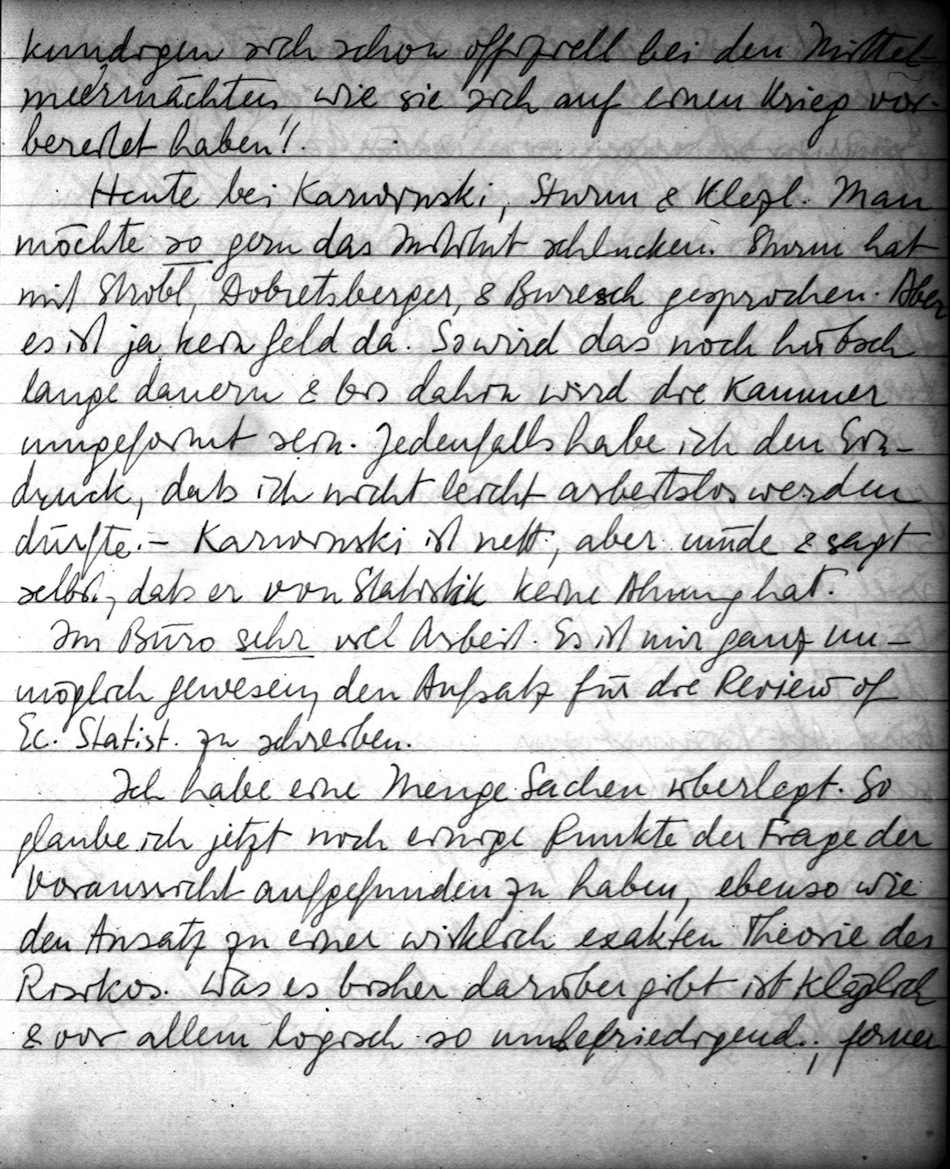 kundigen sich schon offiziell bei den Mittel-
meermächten, wie sie sich auf einen Krieg vor-
bereitet haben!.
Heute bei Karwinski, Sturm & Klezl. Man
möchte so gern das Institut schlucken. Sturm hat
mit Strobl, Dobretsberger, & Buresch gesprochen. Aber
es ist ja kein Geld da. So wird das noch hübsch
lange dauern & bis dahin wird die Kammer
umgeformt sein. Jedenfalls habe ich den Ein-
druck, dass ich nicht leicht arbeitslos werden
dürfte. – Karwinski ist nett, aber müde & sagt
selbst, dass er von Statistik keine Ahnung hat.
Im Büro sehr viel Arbeit. Es ist mir ganz un-
möglich gewesen, den Aufsatz für die Review of
Ec. Statist. zu schreiben.
Ich habe eine Menge Sachen überlegt. So
glaube ich jetzt noch einige Punkte der Frage der
Voraussicht aufgefunden zu haben, ebenso wie
den Ansatz zu einer wirklich exakten Theorie des
Risikos. Was es bisher darüber gibt ist kläglich
& vor allem logisch so unbefriedigend., ferner